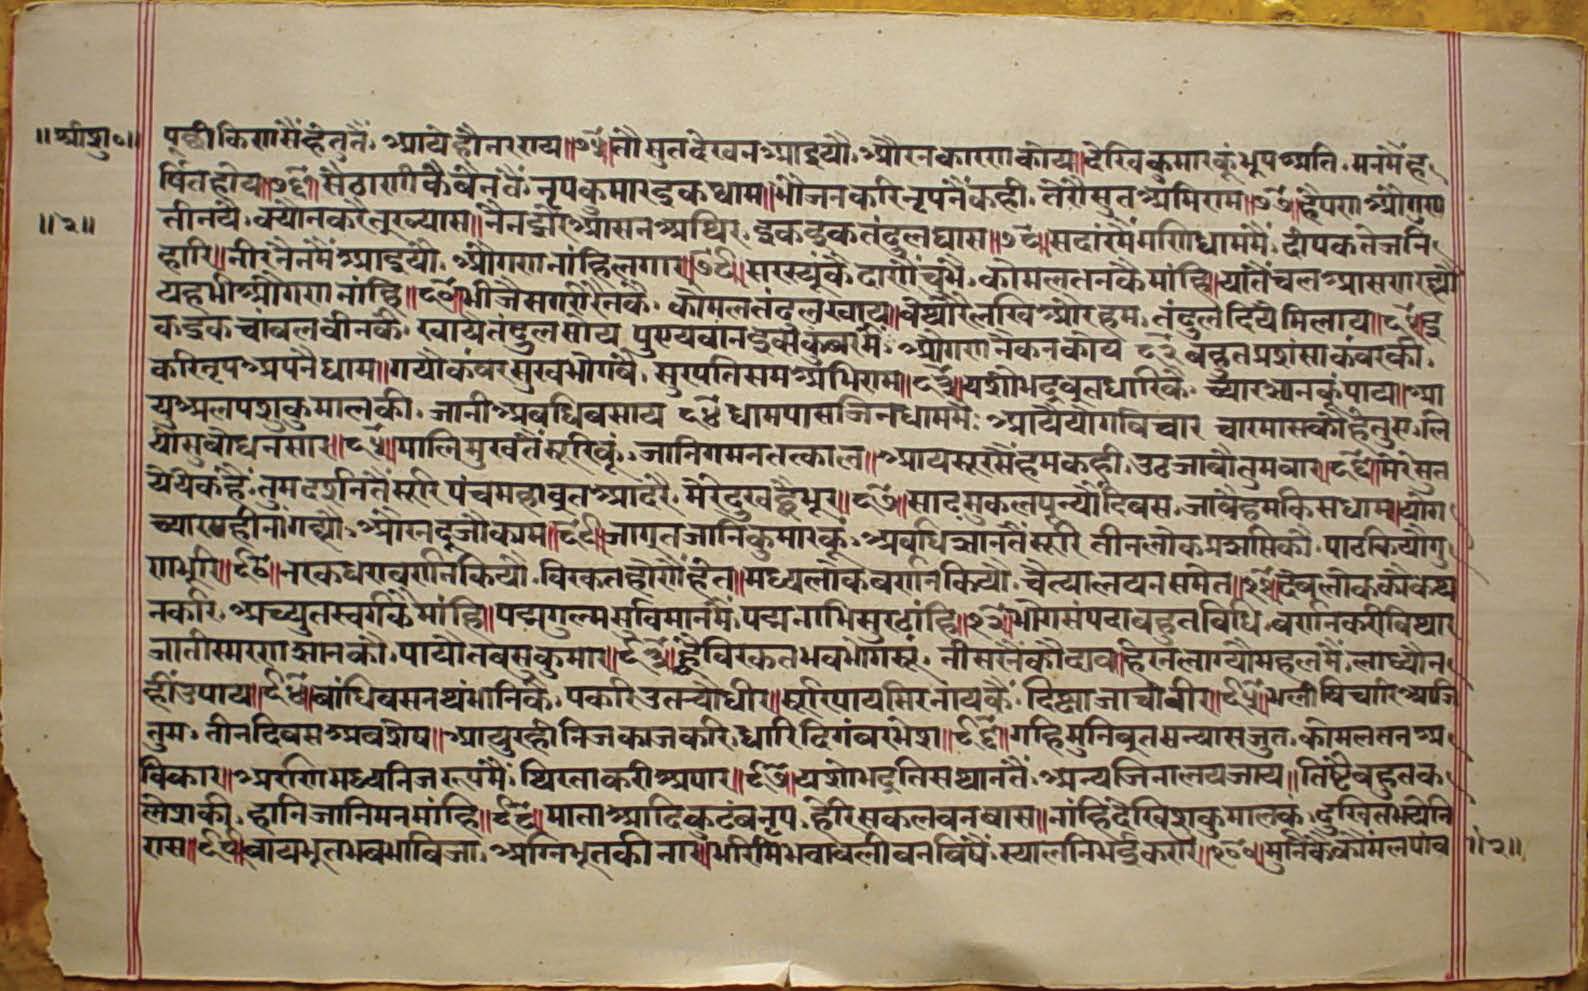 पूछी किणसैं हेतुतैं आये हौ नरराय ॥७५॥ तौ सुत देखन आइयौ औरन कारण कोय देखि कुमारकूं भूप अति मनमैं ह
र्षित होय ॥७६॥ सेठाणी कै वैनतैं नृप कुमार इक धाम भोजन करि नृपनैं कही तेरो सुत अभिराम ॥७७॥ है पण औगुण
॥२॥
तीनयै क्यौ न करै तुर व्यास नैन झरै आसन अथिर इक इक तंदुल घास ॥७८॥ सदा रमै मणिधाममैं दीपक तेज नि
हारि नीर नैनमैं आइयौ औगण नांहि लगार ॥७९॥ सरस्यूंकै दाणौं चुभै कोमल तनकै मांहि यातैं चल आसण रह्यौ
यह भी औगण नांहि ॥८०॥ भीजै सगरी रैनकै कोमल तंदुल खाय वे थोरे लखि और हम तंदुल दिये मिलाय ॥८१॥ इ
क इक चांवल वीनकी खाये तंदुल सोय पुण्यवांन इक्वै कुंवरमैं औगण नैक न कोय ८२ बहुत प्रशंसा कंवरकी
करि नृप अपनै धाम गयौ कंवर सुख भोगवै सुरपतिसम अभिराम ॥८३॥ यशोभद्र वृतधारिकै च्यार ग्यानकूं पाय आ
यु अलप शुकुमालकी जानी अवधि वसाय ८४ धाम पास जिनधाममैं आये योग विचार चारमासकौ हेतुस लि
यौ सुबोधनसार ॥८५॥ पालि मुखतैं सूरिकूं जानि गमन ततकाल आय सूरसैं हम कही उठ जावौ तुम वार ॥८६॥ मेरे सुत
ये येकहै तुम दर्शनतैं सूरि पंचमहावृत आदरै मेरै दुख ह्वै भूर ॥८७॥ साद सुकल पून्यौं दिवस जावै हम किस धाम योग
च्यार महीनां गह्यौ और न दूजौ काम ॥८८॥ जागृत जानि कुमारकूं अवधि ज्ञानतैं सूरि तीन लोक प्रज्ञप्तिकौ पाठ कियौ गु
णभूरि ॥८९॥ नरक धरा वर्णन कियौ विरकत होणौं हेत मध्यलोक वर्णन कियौ चैत्यालयन समेत ॥९०॥ देवलोककौ कथ
न करि अच्युत स्वर्गकै मांहि पद्मगुल्म स विमानमैं पद्मनाभि सुर ठांहि ॥९१॥ भोग संपदा बहुत विधि वर्णन करी विथार
जातीस्मरण ज्ञानकौ पायौ तब सुकुमार ॥९२॥ ह्वै विरकत भव भोगसूं नीसरनैंकौ दाव हेरन लाग्यौ महलमैं लाध्यौ न
हीं उपाय ॥९४॥ बांधि वसन थंभानिकै पकरि उतन्यौ धीर सूरि पाय सिर नांयकै दिष्टा जाची वीर ॥९५॥ भली विचारि आजि
तुम तीन दिवस अवशेष आयु रही निज काज करि धारि दिगंबर भेश ॥९६॥ गहि मुनि वृत सन्यासजुत कोमल तन अ
विकार अर्णण मध्य निज रूपमैं थिरता करी अपार ॥९७॥ यशोभद्र तिस थानतैं अन्य जिनालय जाय तिष्टै बहुत क
लेशकी हानि जानि मन मांहि ॥९८॥ माता आदि कुटंब नृप हेरि सकल वनवास नांहि देखि शकुमालकं दुखित भये नि
रास ॥९९॥ वायभूत भव भाविजा अग्निभूतकी नारि भरमि भवावली वनविषैं स्यालनि भई करार ॥१००॥ मुनिकै कोमल पांव ॥२॥